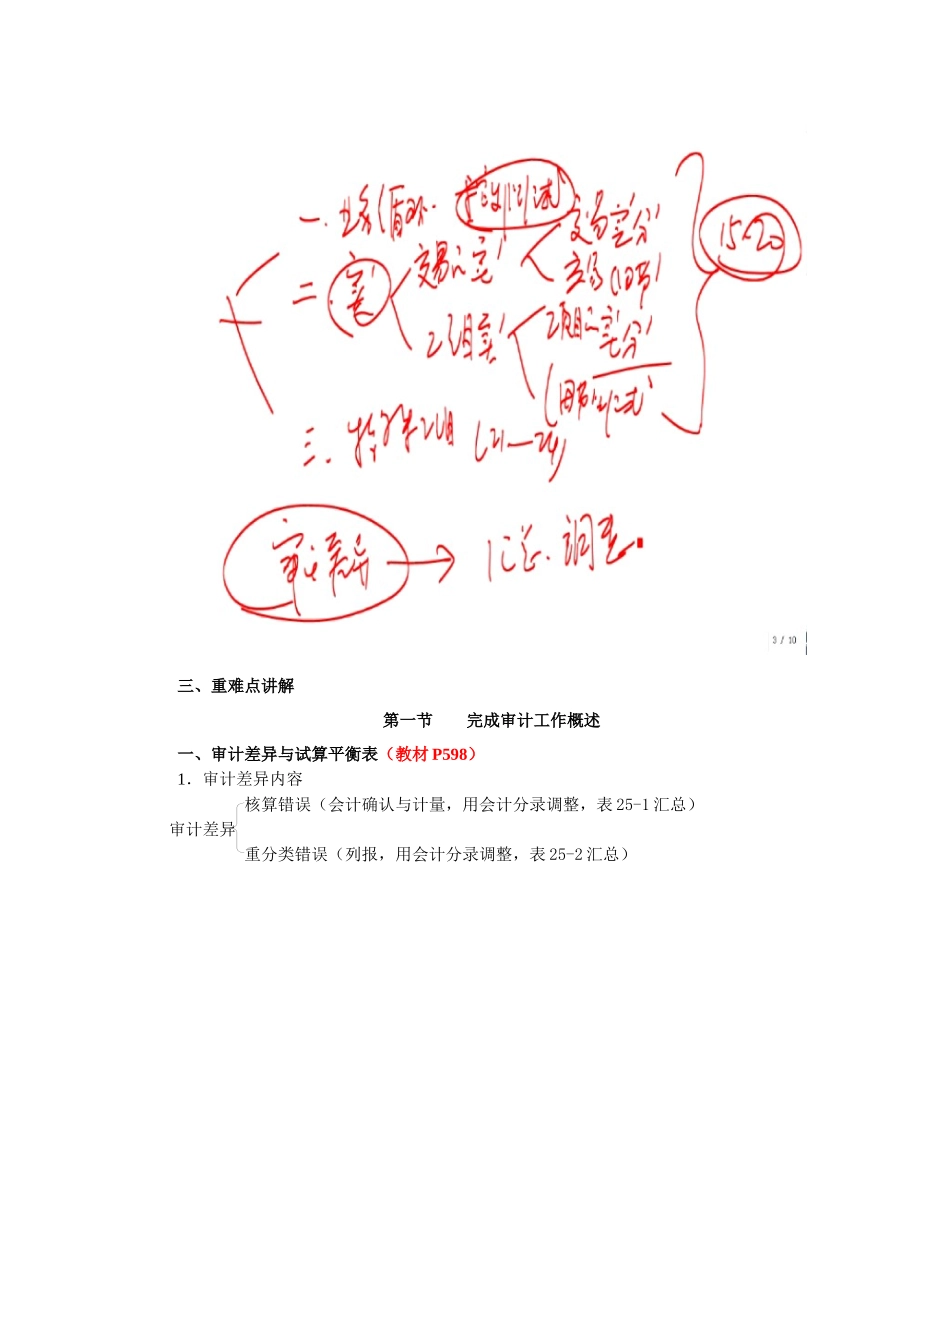 一.业务循环.控制测试
二.实
交易实
交易实分
交易细节
项目实
项目实分
细节测试
15-20
三.特殊项目(21-24)
审计差异→汇总.调整.
3 / 10
三、重难点讲解
第一节 完成审计工作概述
一、审计差异与试算平衡表（教材 P598）
1．审计差异内容
核算错误（会计确认与计量，用会计分录调整，表 25-1 汇总）
审计差异
重分类错误（列报，用会计分录调整，表 25-2 汇总）